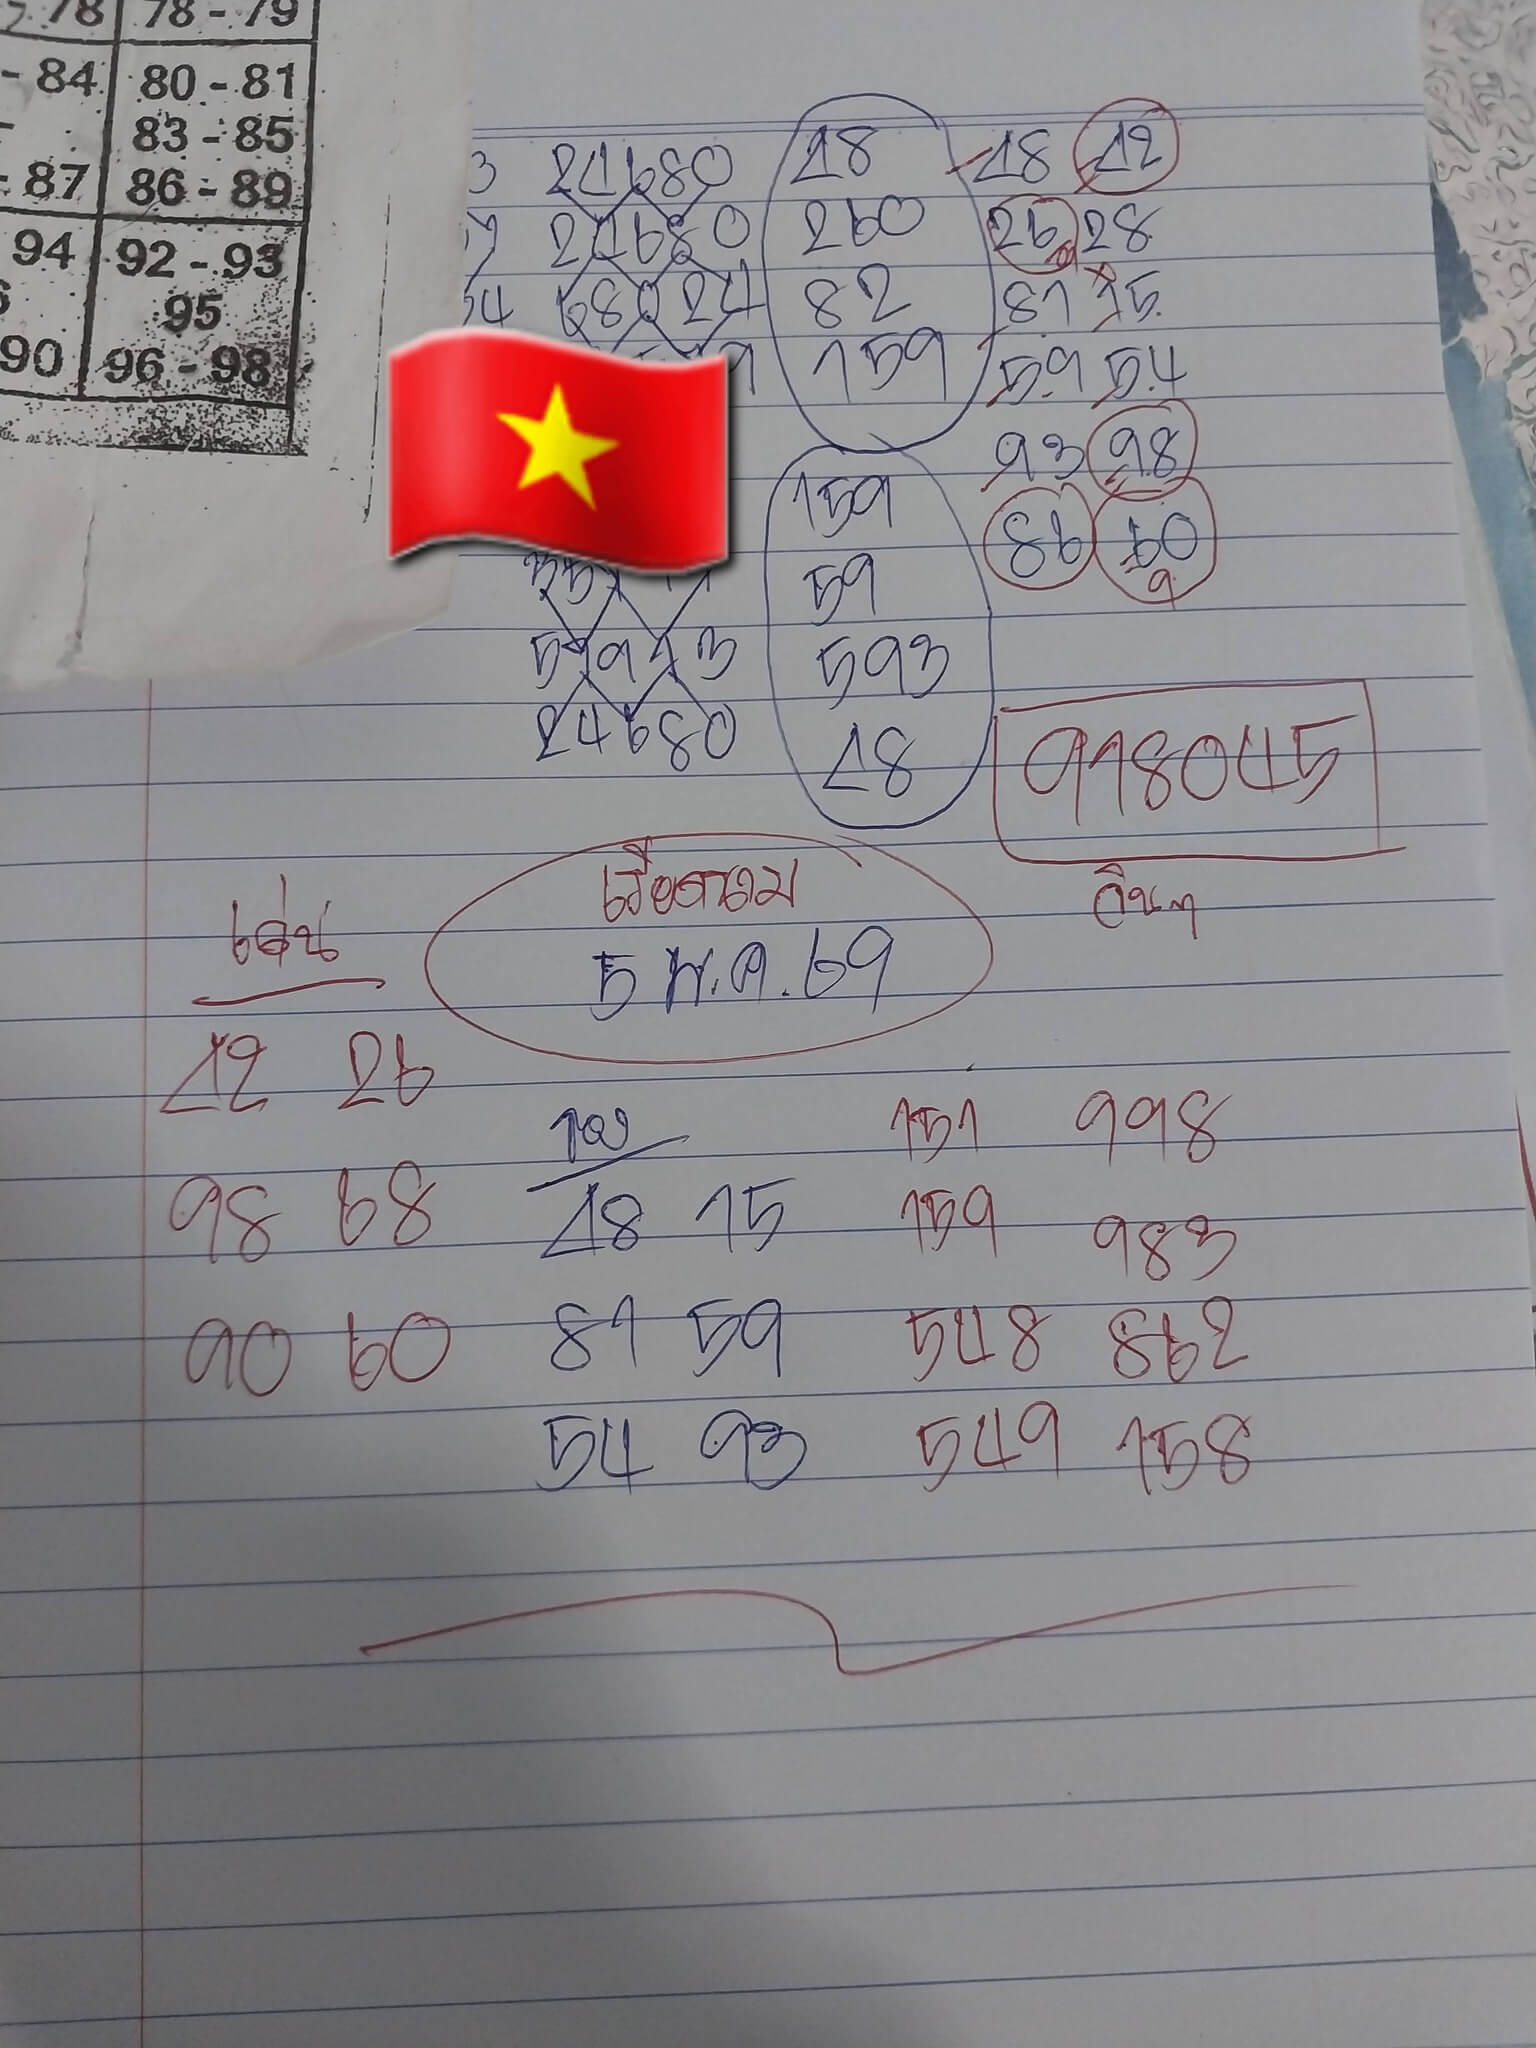 78 78 - 79
- 84 80 - 81
83 - 85
- 87 86 - 89
94 92 - 93
95
90 96 - 98
3 24680 18 18 12
24680 260 26 28
68024 82 81 15
159 59 54
93 98
159 86 60
9
59
593
24680 18 918045
เวียดนาม
เด่น 5 พ.ค. 69
12 26
รอง 151 998
98 68 18 15 159 983
90 60 81 59 548 862
54 93 549 158